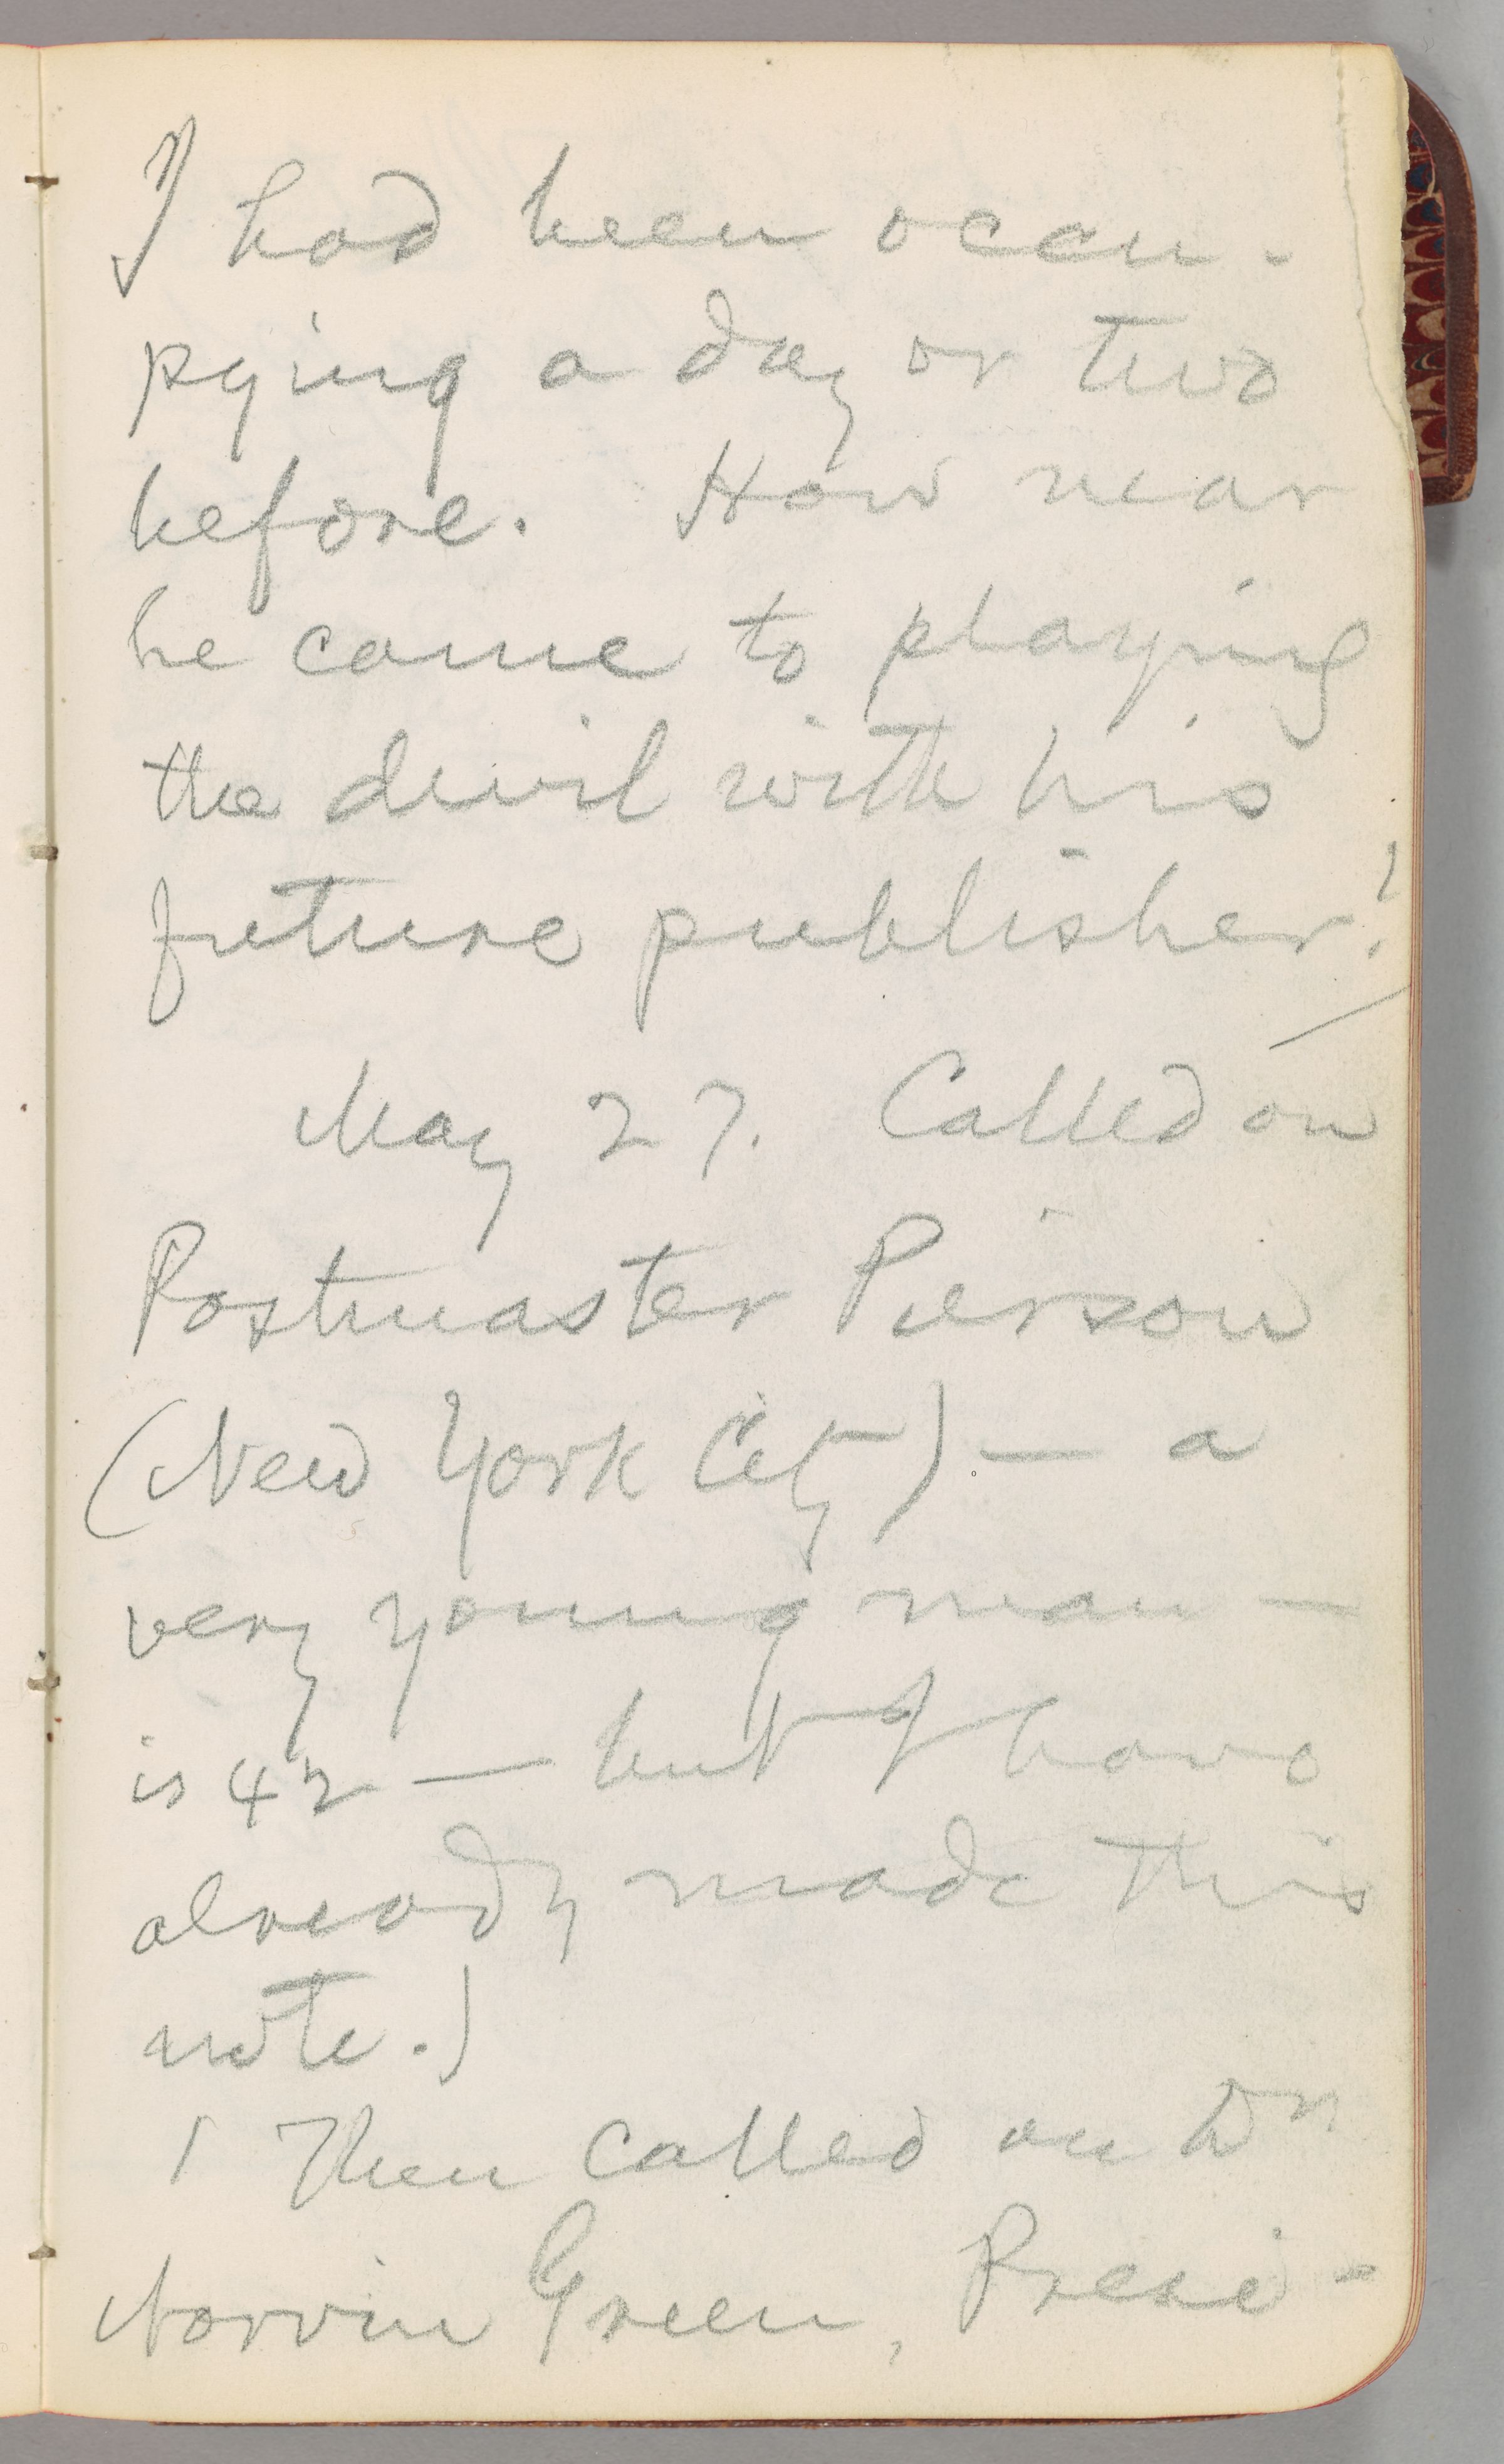 I had been occu-
pying a day or two
before. How near
he came to playing
the devil with his
future publisher!
May 27. Called on
Postmaster Pierson
(New York City) — a
very young man —
is 42 — but I have
already made this
note.)
Then called on Dr
Norvin Green, Presi-